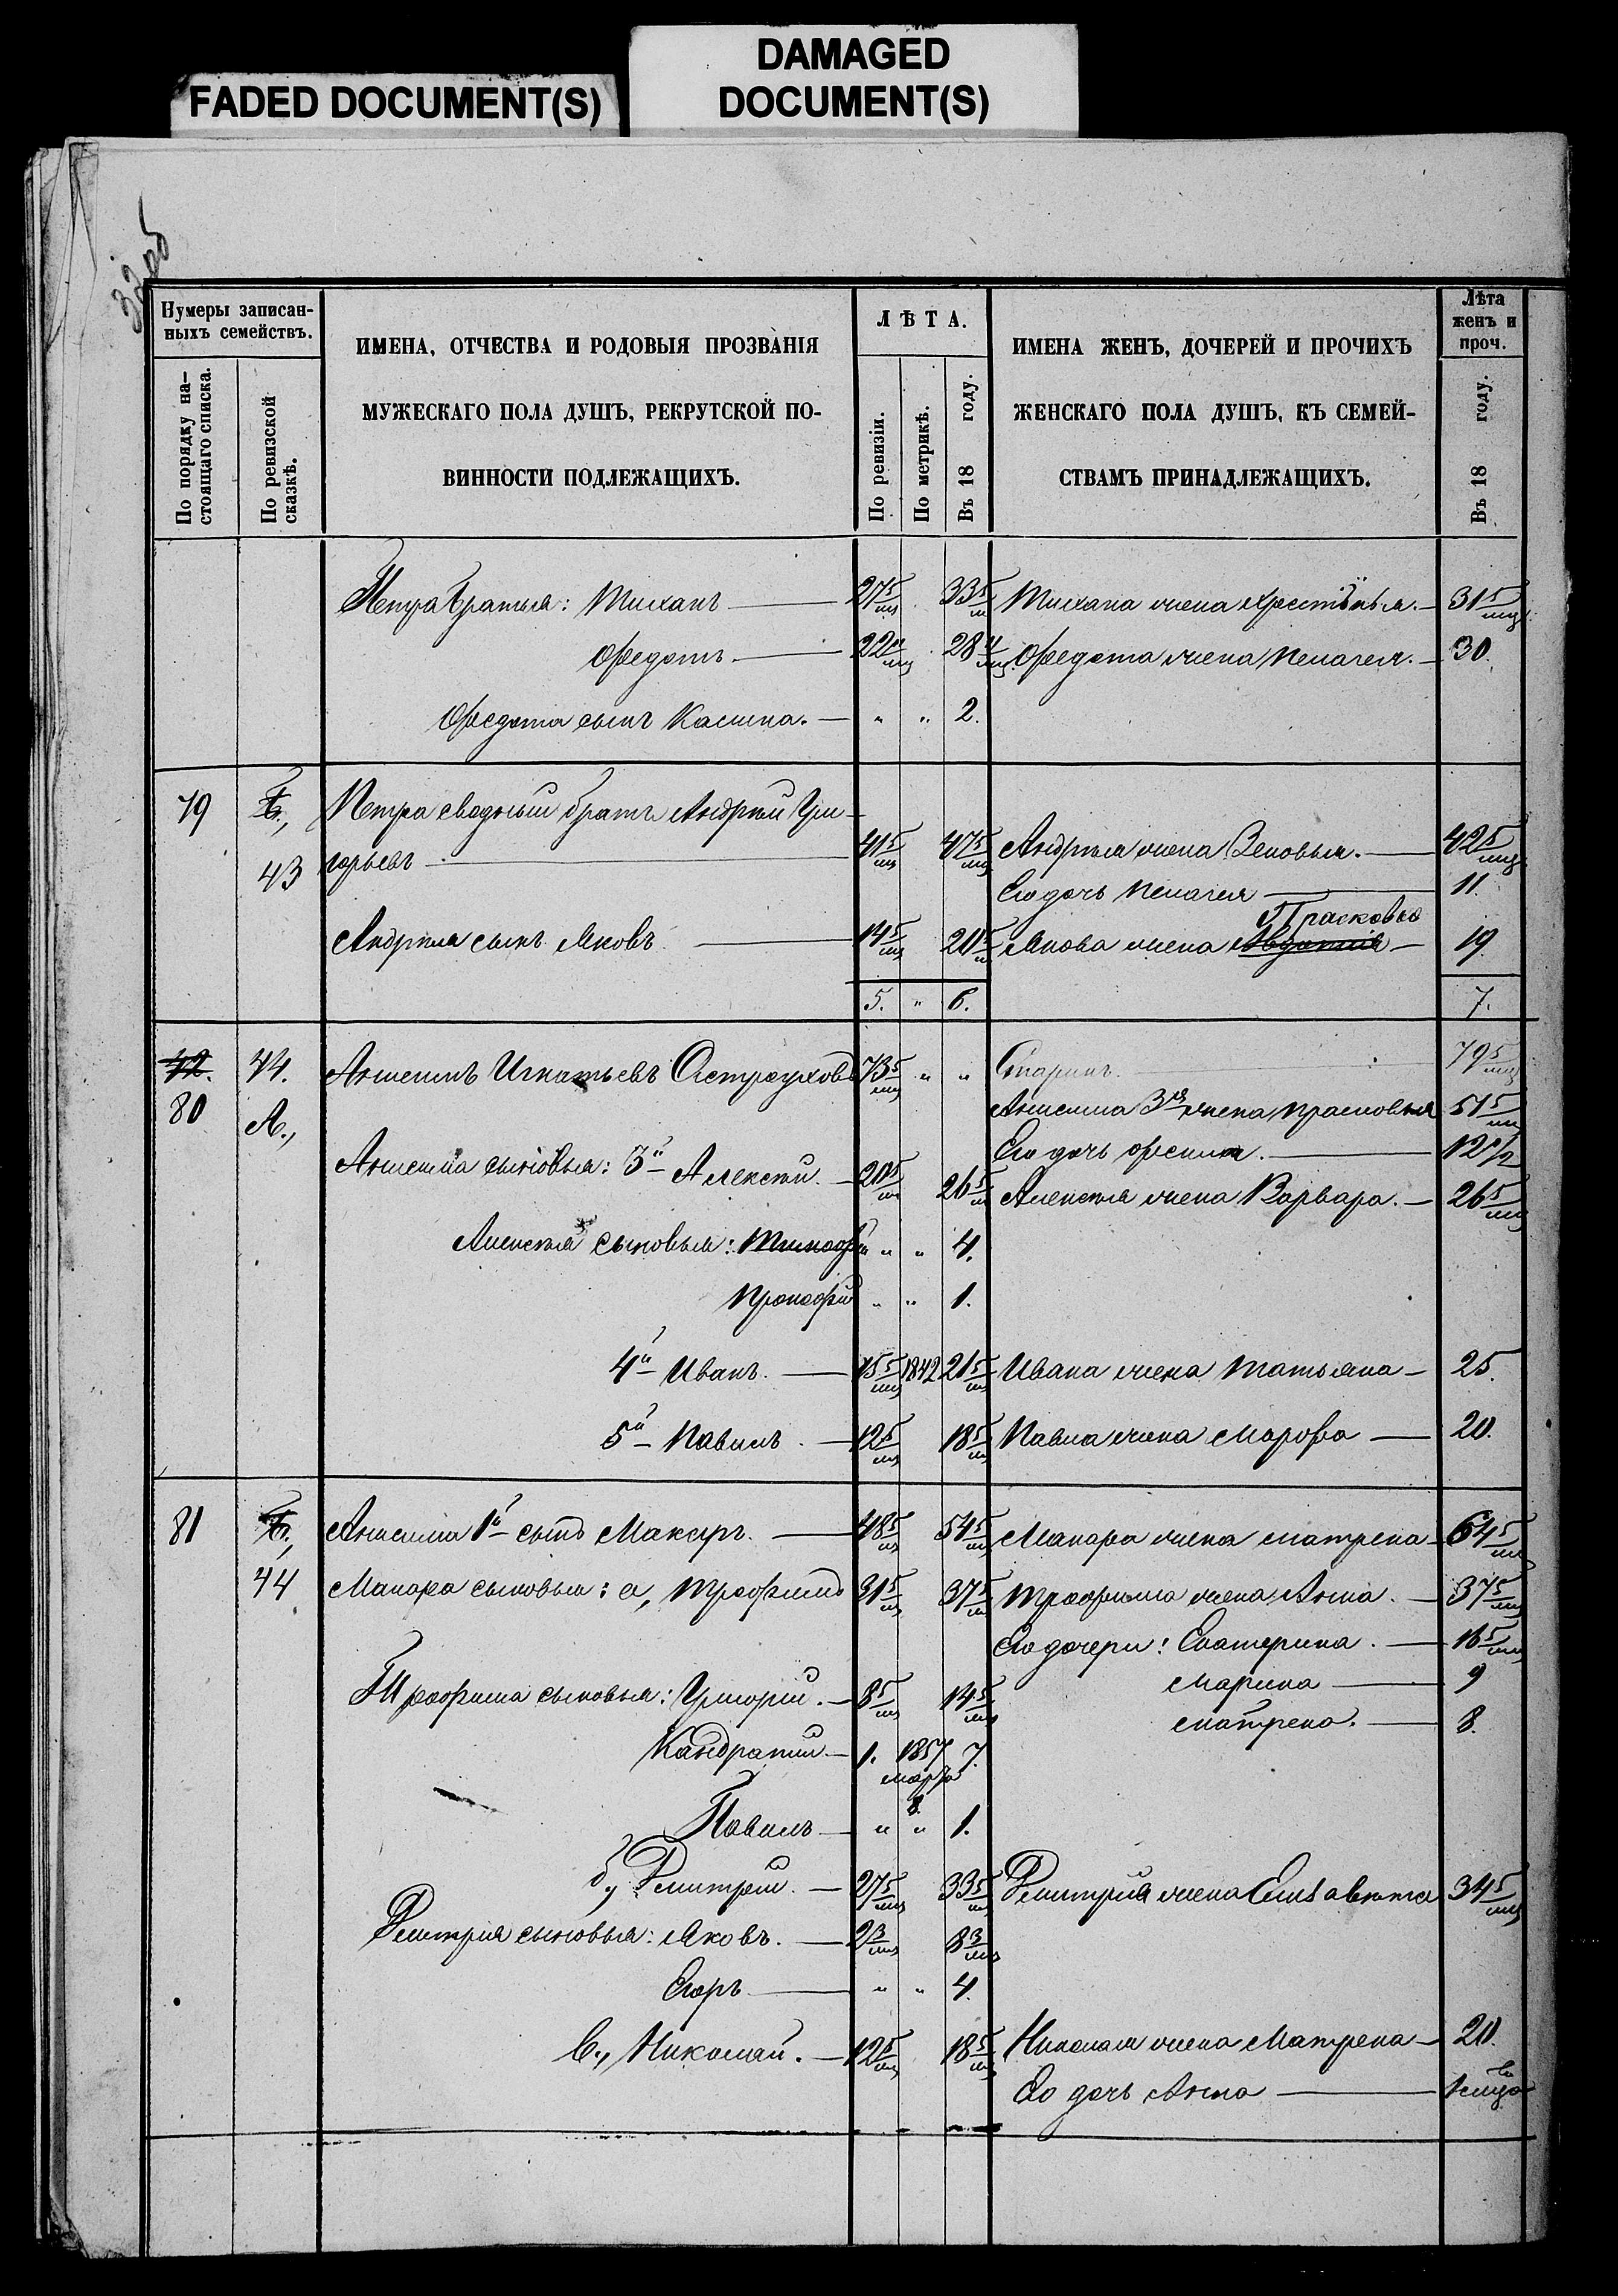 FADED DOCUMENT(S)
DAMAGED
DOCUMENT(S)
Нумеры записан-
ныхъ семействъ.
По порядку на-
стоящаго списка.
По ревизской
сказкѣ.
ИМЕНА, ОТЧЕСТВА И РОДОВЫЯ ПРОЗВАНІЯ
МУЖЕСКАГО ПОЛА ДУШЪ, РЕКРУТСКОЙ ПО-
ВИННОСТИ ПОДЛЕЖАЩИХЪ.
ЛѢТА.
По ревизіи.
По метрикѣ.
Въ 18 году.
ИМЕНА ЖЕНЪ, ДОЧЕРЕЙ И ПРОЧИХЪ
ЖЕНСКАГО ПОЛА ДУШЪ, КЪ СЕМЕЙ-
СТВАМЪ ПРИНАДЛЕЖАЩИХЪ.
Лѣта
женъ и
проч.
Въ 18 году.
Петра братья: Тиханъ — 27 5/мц 33 5/м Тихана жена Хрестинья. — 31 5/мц
Федотъ — 22 4/мц 28 4/мц Федота жена Пелагея. — 30.
Федота сынъ Касьпа. — " " 2.
79 Б., Петра сводный братъ Андрѣй Гри-
43 горьевъ — 41 5/мц 47 5/мц Андрѣя жена Зеновья. — 42 5/мц
Его дочь Пелагея — 11.
Прасковья
Андрѣя сынъ Яковъ — 14 5/мц 20 5/м Якова жена Авдотья — 19.
5. " 6. 7.
42. 44. Анисимъ Игнатьевъ Остроуховъ 73 5/мц " " Старикъ. 79 5/мц
80 А., Анисима 3я жена Прасковья 51 5/мц
Его дочь Фекла. — 12 1/2
Анисима сыновья: 3й Алексѣй. — 20 5/м 26 5/м Алексѣя жена Варвара. — 26 5/мц
Алексѣя сыновья: Тимофѣй " " 4.
Прокофій " " 1.
4й Иванъ. — 15 5/мц 1842 21 5/мц Ивана жена Татьяна — 25.
5й Павилъ. — 12 5/мц 18 5/м Павла жена Марфа — 20.
81 Б., Анисима 1й сынъ Макаръ. — 48 5/м 54 5/мц Макара жена Матрена — 64 5/мц
44 Макара сыновья: а, Трофимъ 31 5/мц 37 5/м Трофима жена Анна. — 37 5/мц
Его дочери: Екатерина. — 16 5/мц
Трофима сыновья: Григорій. — 8 5/мц 14 5/мц Марина — 9
Матрена. — 8.
Кандратій — 1. 1857 7.
марта
8.
Павилъ — " " 1.
б, Дмитрей. — 27 5/мц 33 5/м Дмитрія жена Елизавета 34 5/мц
Дмитрія сыновья: Яковъ. — 2 3/мц 8 3/мц
Егоръ — " " 4.
в., Николай. — 12 5/мц 18 5/мц Николая жена Матрена — 20.
Его дочь Анна —